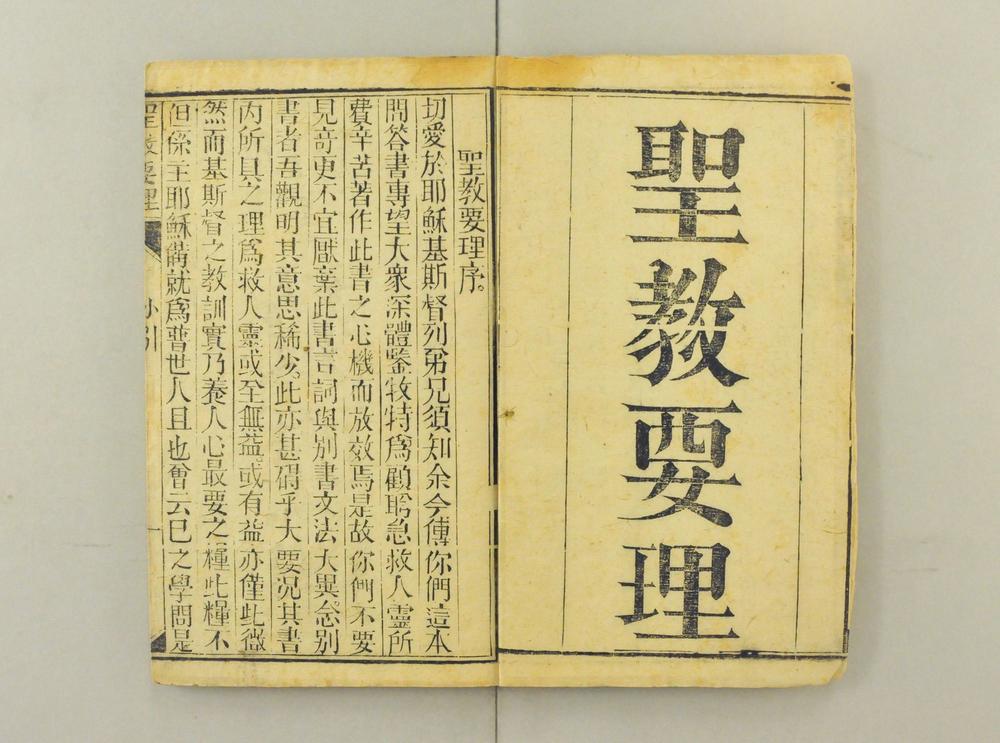 聖教要理
聖教要理序。
切愛於耶穌基斯督列弟兄須知余今傳你們這本
問答書專望大衆深體鑒牧特爲顧聆急救人靈所
費辛苦著作此書之心機而放效焉是故你們不要
見奇更不宜厭棄此書言詞與別書文法大異忩别
書者吾觀明其意思稀少。此亦甚碍乎大要況其書
內所具之理爲救人靈或至無益。或有益亦僅此微
然而基斯督之教訓實乃養人心最要之糧此糧不
但係主耶穌備就爲普世人且也曾云巳之學問是
聖教要理 小引 一